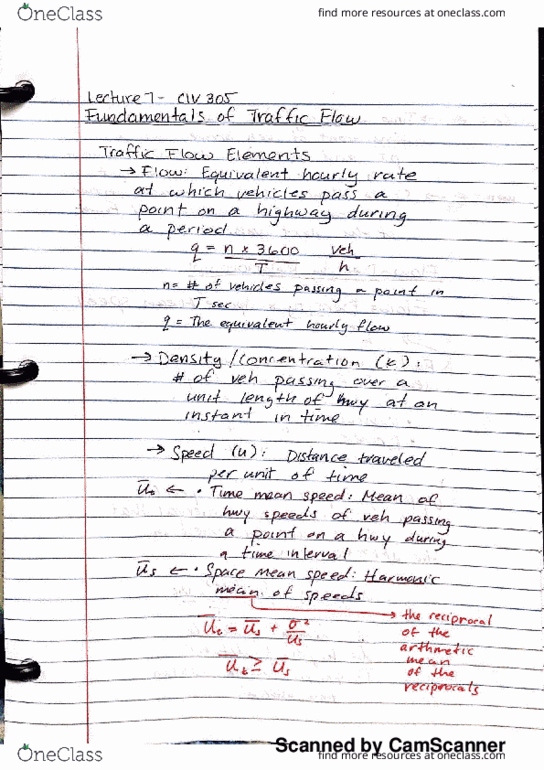 OneClass
find more resources at oneclass.com
Lecture 7 - CIV 305
Fundamentals of Traffic Flow
Traffic Flow Elements
→ Flow: Equivalent hourly rate
at which vehicles pass a
point on a highway during
a period
q = n x 3600 / T veh / h
n = # of vehicles passing a point in
T sec
q = The equivalent hourly flow
→ Density/Concentration (k):
# of veh passing over a
unit length of hwy at an
instant in time
→ Speed (u): Distance traveled
per unit of time
← • Time mean speed: Mean of
hwy speeds of veh passing
a point on a hwy during
a time interval
u̅s ← • Space mean speed: Harmonic
mean of speeds
→ the reciprocal
of the
arithmetic
mean
of the
reciprocals
u̅t = u̅s + σ² / u̅s
u̅t ≥ u̅s
Scanned by CamScanner
OneClass
find more resources at oneclass.com